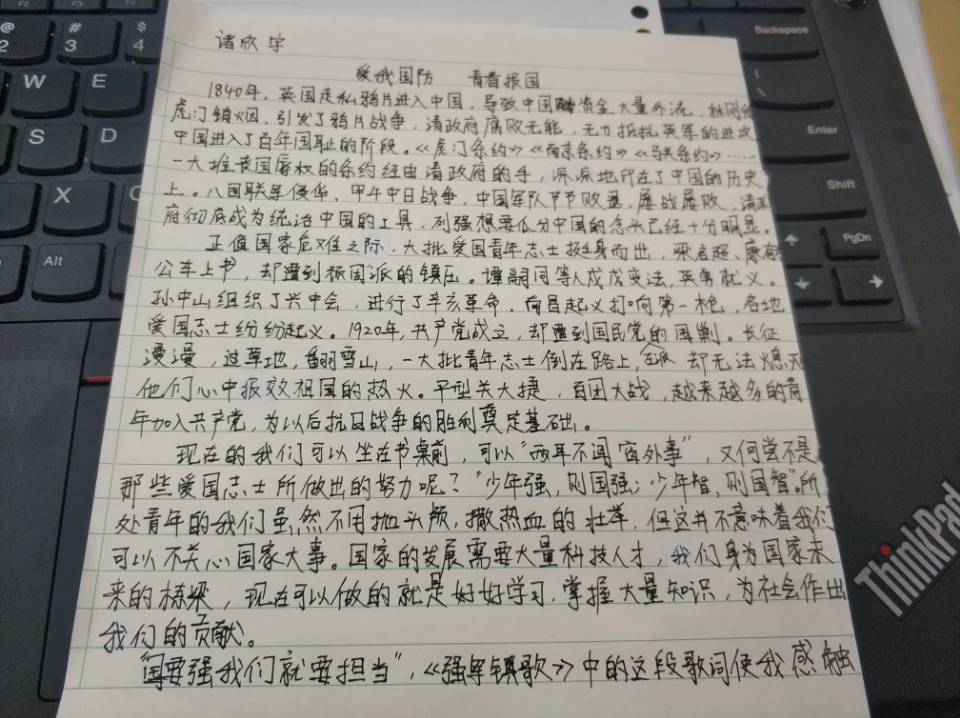 诸欣宇
爱我国防 青春报国
1840年，英国走私鸦片进入中国，导致中国资金大量外流，林则徐
虎门销烟，引发了鸦片战争，清政府腐败无能，无力抵抗英军的进攻
中国进入了百年国耻的阶段。《虎门条约》《南京条约》《马关条约》……
一大堆丧国辱权的条约经由清政府的手，深深地印在了中国的历史
上。八国联军侵华、甲午中日战争，中国军队节节败退，屡战屡败，清政
府彻底成为统治中国的工具，列强想要瓜分中国的念头已经十分明显。
正值国家危难之际，大批爱国青年志士挺身而出，梁启超、康有为
公车上书，却遭到顽固派的镇压。谭嗣同等人戊戌变法，英勇就义。
孙中山组织了兴中会，进行了辛亥革命，南昌起义打响第一枪，各地
爱国志士纷纷起义。1920年，共产党成立，却遭到国民党的围剿。长征
漫漫，过草地，翻雪山，一大批青年志士倒在路上，却无法熄灭
他们心中报效祖国的热火。平型关大捷，百团大战，越来越多的青
年加入共产党，为以后抗日战争的胜利奠定基础。
现在的我们可以坐在书桌前，可以"两耳不闻窗外事"，又何尝不是
那些爱国志士所做出的努力呢？"少年强，则国强；少年智，则国智"。所
处青年的我们虽然不用抛头颅，撒热血的壮举，但这并不意味着我们
可以不关心国家大事。国家的发展需要大量科技人才，我们身为国家未
来的栋梁，现在可以做的就是好好学习，掌握大量知识，为社会作出
我们的贡献。
"国要强我们就要担当"，《强军镇歌》中的这段歌词使我感触
ThinkPad
Backspace
Enter
Shift
PgDn
Alt
W
E
S
D
X
C
@
2
#
3
$
4